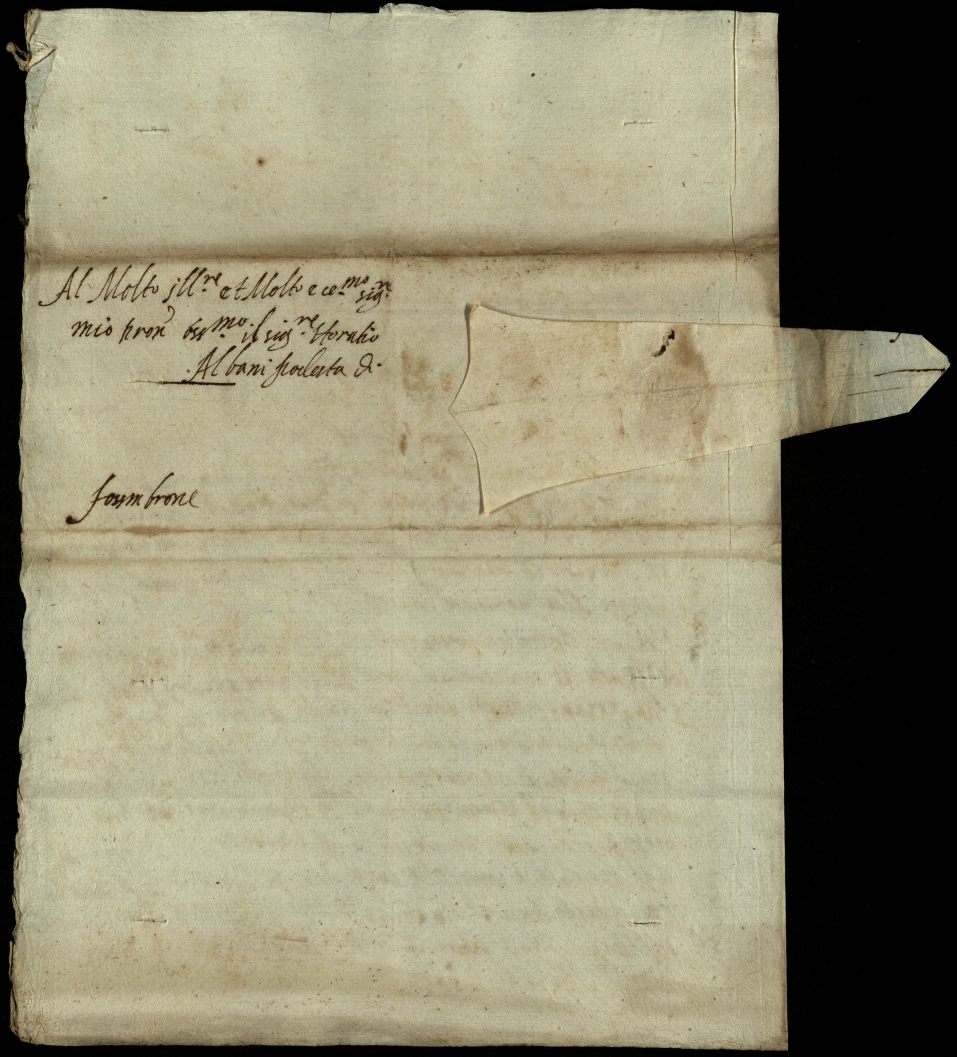 Al Molto jll.re et Molto ece.mo sig.re
mio pron oss.mo il sig.re Horatio
Albani podesta di
fossmbrone